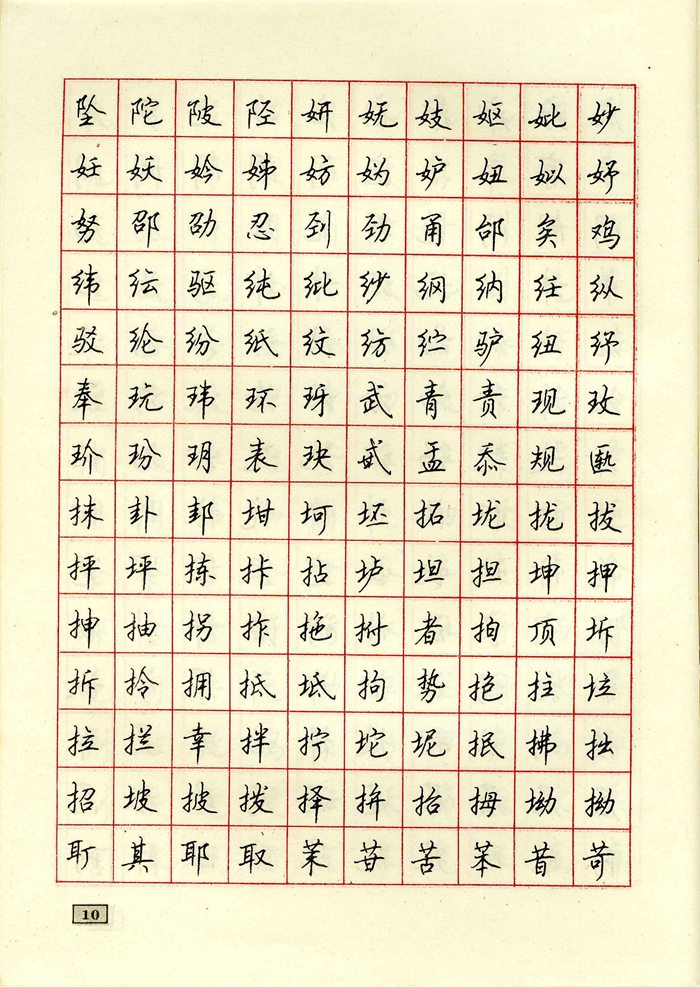 坠陀陂陉妍妩妓妪妣妙
妊妖妗姊妨妫妒妞姒妤
努邵劭忍到劲甬邰矣鸡
纬纭驱纯纰纱纲纳纴纵
驳纶纷纸纹纺纻驴纽纾
奉玩玮环玡武青责现玫
玠玢玥表玦甙盂忝规匦
抹卦邽坩坷坯拓垅拢拔
抨坪拣拤拈垆坦担坤押
抻抽拐拃拖拊者拍顶坼
拆拎拥抵坻拘势抱拄垃
拉拦幸拌拧坨坭抿拂拙
招坡披拨择拚抬拇坳拗
耵其耶取茉苷苦苯昔苛
10